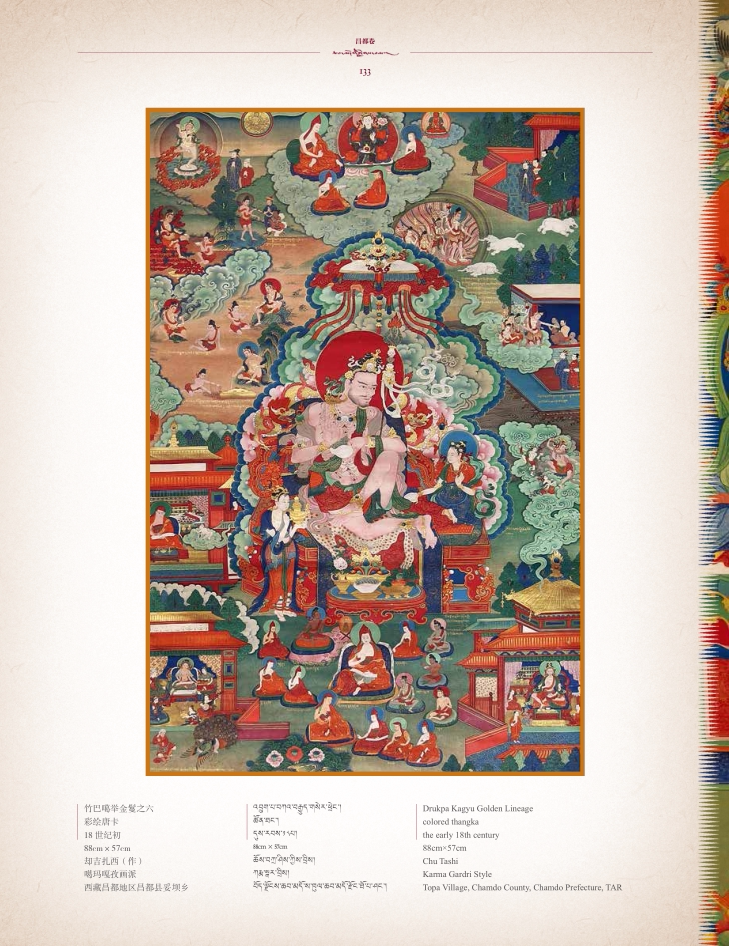 昌都卷
133
竹巴噶举金鬘之六
彩绘唐卡
18 世纪初
88cm × 57cm
却吉扎西（作）
噶玛嘎孜画派
西藏昌都地区昌都县妥坝乡
འབྲུག་པ་བཀའ་བརྒྱུད་གསེར་ཕྲེང་།
ཚོན་ཐང་།
དུས་རབས་༡༨པ།
88cm × 57cm
ཆོས་བཀྲ་ཤིས་ཀྱིས་བྲིས།
ཀརྨ་སྒར་བྲིས།
Drukpa Kagyu Golden Lineage
colored thangka
the early 18th century
88cm×57cm
Chu Tashi
Karma Gardri Style
Topa Village, Chamdo County, Chamdo Prefecture, TAR